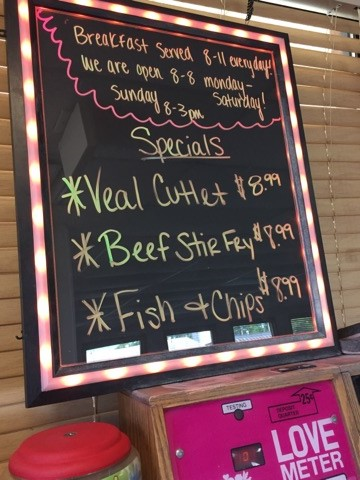 Breakfast Served 8-11 everyday!
We are open 8-8 monday-
Sunday Saturday!
8-3pm
Specials
*Veal Cutlet $8.99
*Beef Stir Fry $8.99
*Fish & Chips $8.99
TESTING
DEPOSIT
QUARTER
25¢
0
LOVE
METER